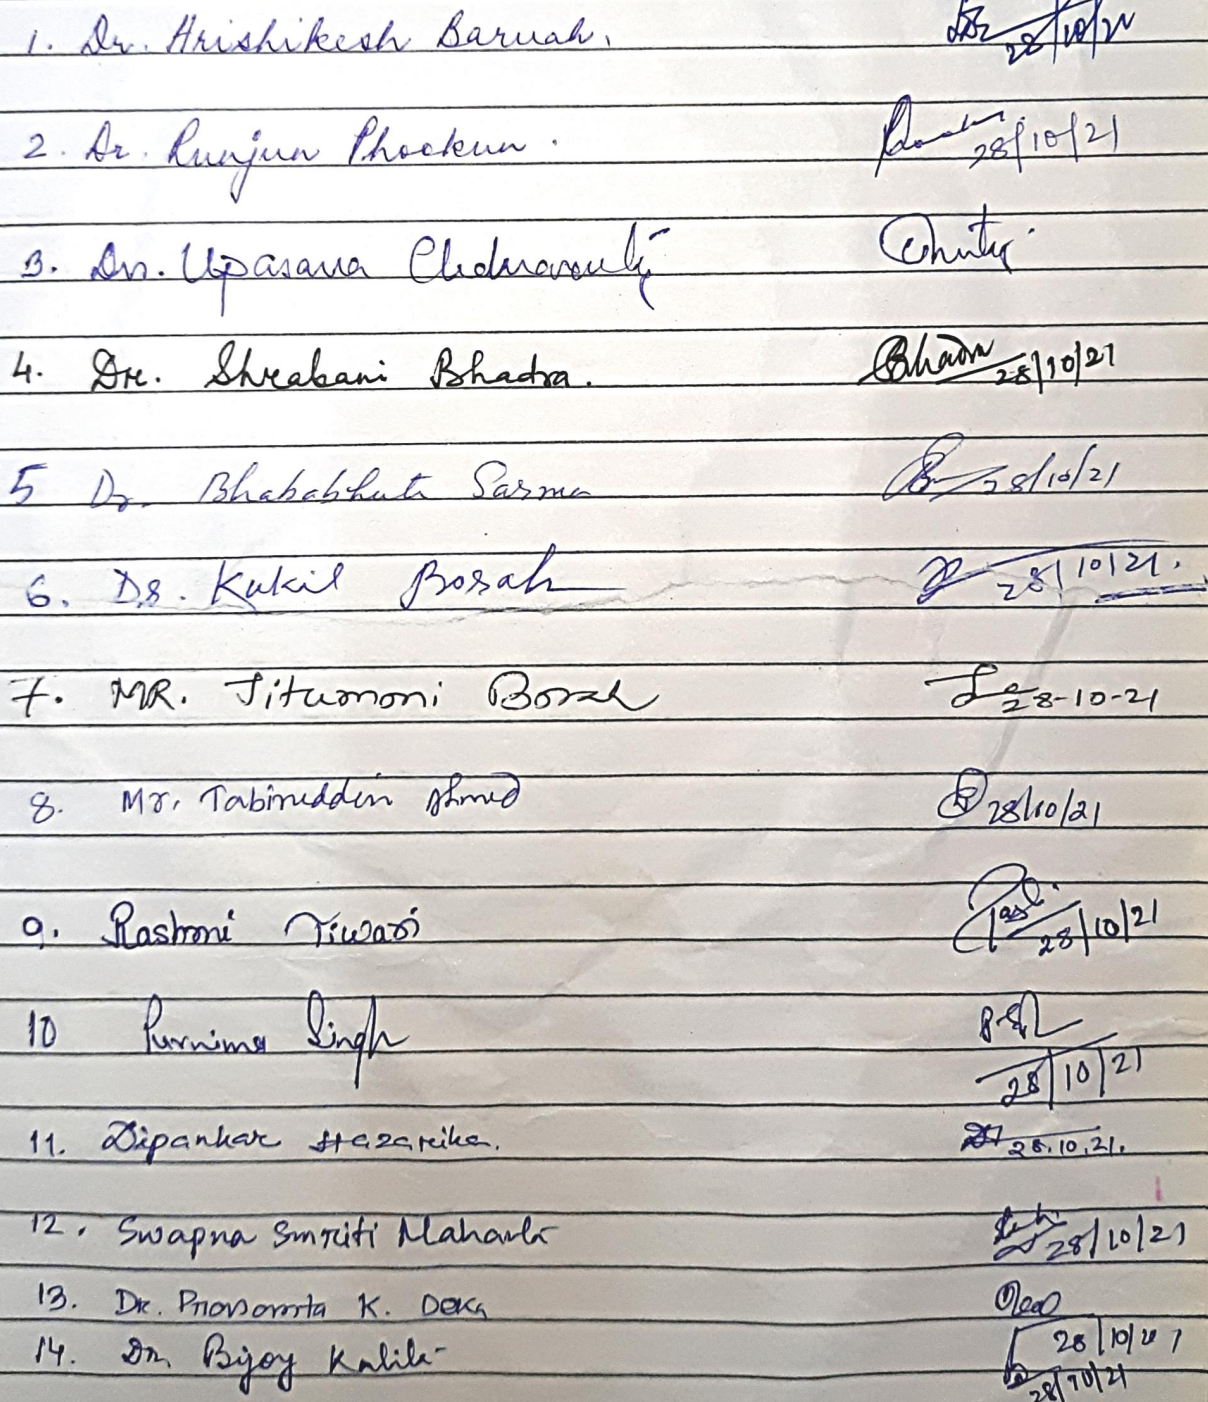 1. Dr. Hrishikesh Baruah, 28/10/21
2. Dr. Runjun Phookun. 28/10/21
3. Dr. Upasana
4. Dr. Shrabani Bhadra. Bhadra 28/10/21
5 Dr. Bhababhuti Sarma 28/10/21
6. Dr. Kukil Borah 28/10/21.
7. MR. Jitumoni Borah 28-10-21
8. Mr. Tabiruddin Ahmed 28/10/21
9. Rashmi Tiwari 28/10/21
10 Purnima Singh
28/10/21
11. Dipankar Hazarika. 28.10.21.
12. Swapna Smriti Mahanta 28/10/21
13. Dr. K. Deka
28/10/21
14. Dr. Bijoy Kalita
28/10/21